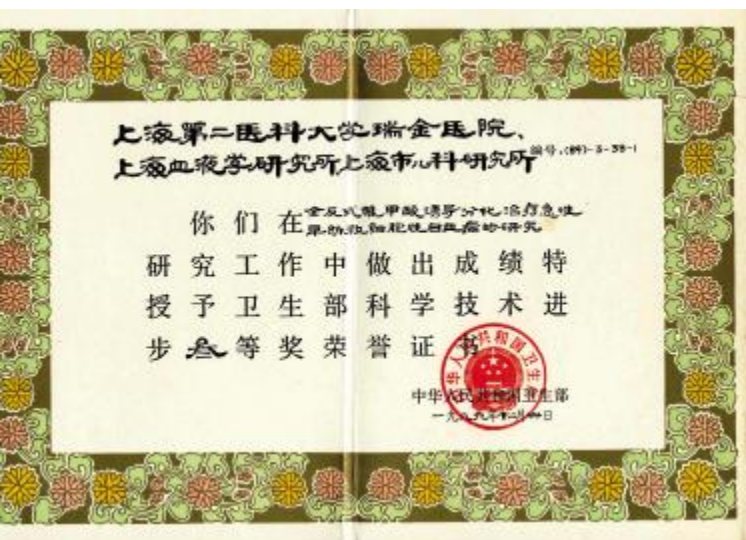 上海第二医科大学瑞金医院、
上海血液学研究所上海市儿科研究所
编号:(89)-3-38-1
你们在全反式维甲酸诱导分化治疗急性
早幼粒细胞性白血病的研究
研究工作中做出成绩特
授予卫生部科学技术进
步叁等奖荣誉证书
中华人民共和国卫生部
一九八九年十二月 日